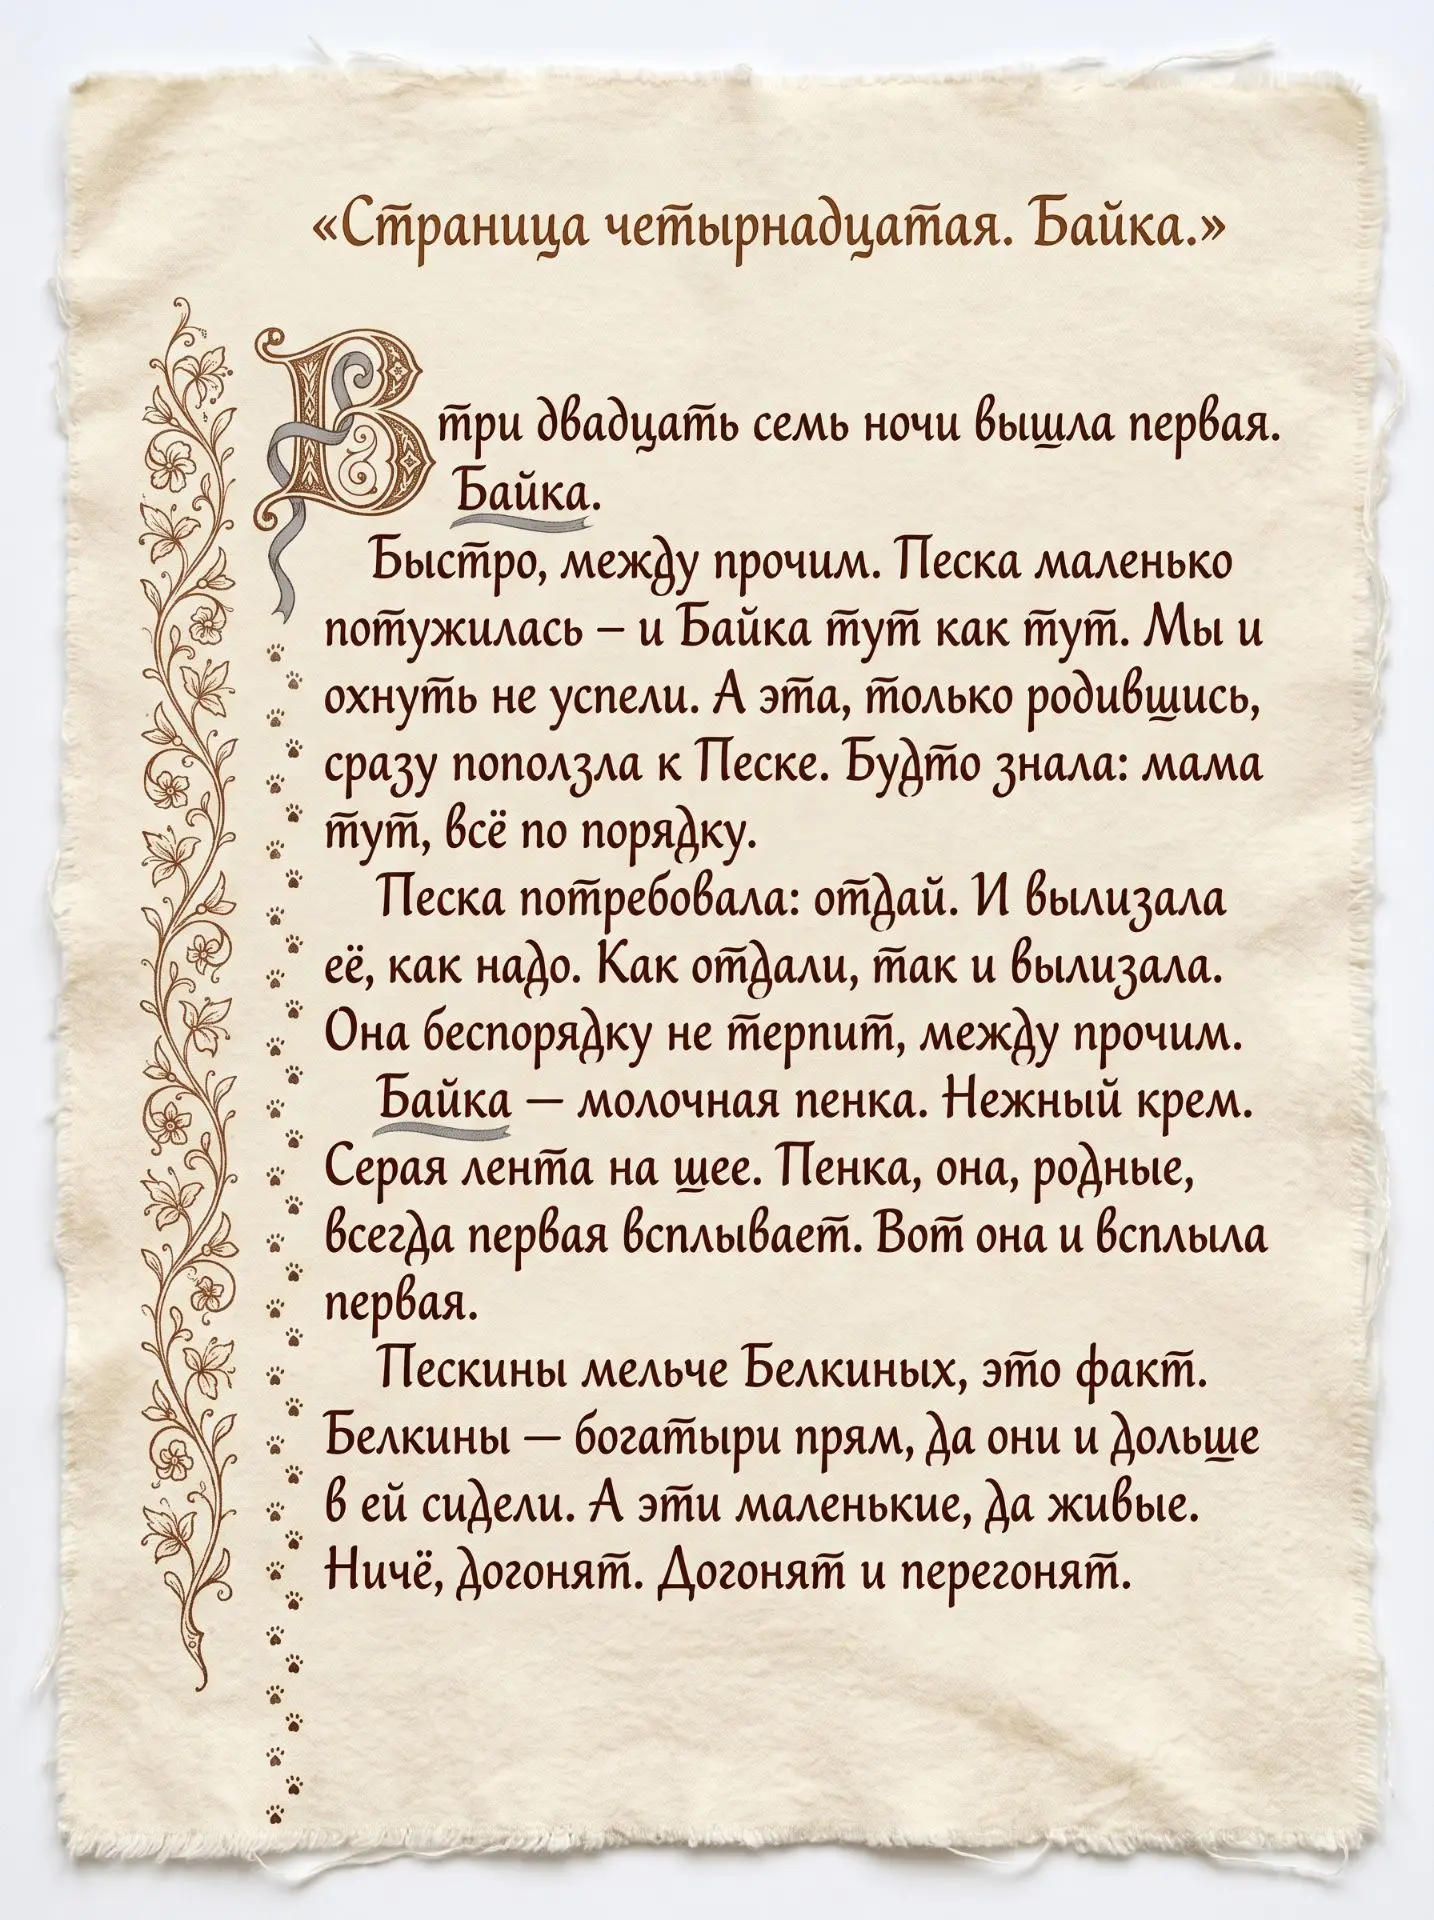 «Страница четырнадцатая. Байка.»
В три двадцать семь ночи вышла первая.
Байка.
Быстро, между прочим. Песка маленько
потужилась – и Байка тут как тут. Мы и
охнуть не успели. А эта, только родившись,
сразу поползла к Песке. Будто знала: мама
тут, всё по порядку.
Песка потребовала: отдай. И вылизала
её, как надо. Как отдали, так и вылизала.
Она беспорядку не терпит, между прочим.
Байка — молочная пенка. Нежный крем.
Серая лента на шее. Пенка, она, родные,
всегда первая всплывает. Вот она и всплыла
первая.
Пескины мельче Белкиных, это факт.
Белкины — богатыри прям, да они и дольше
в ей сидели. А эти маленькие, да живые.
Ничё, догонят. Догонят и перегонят.